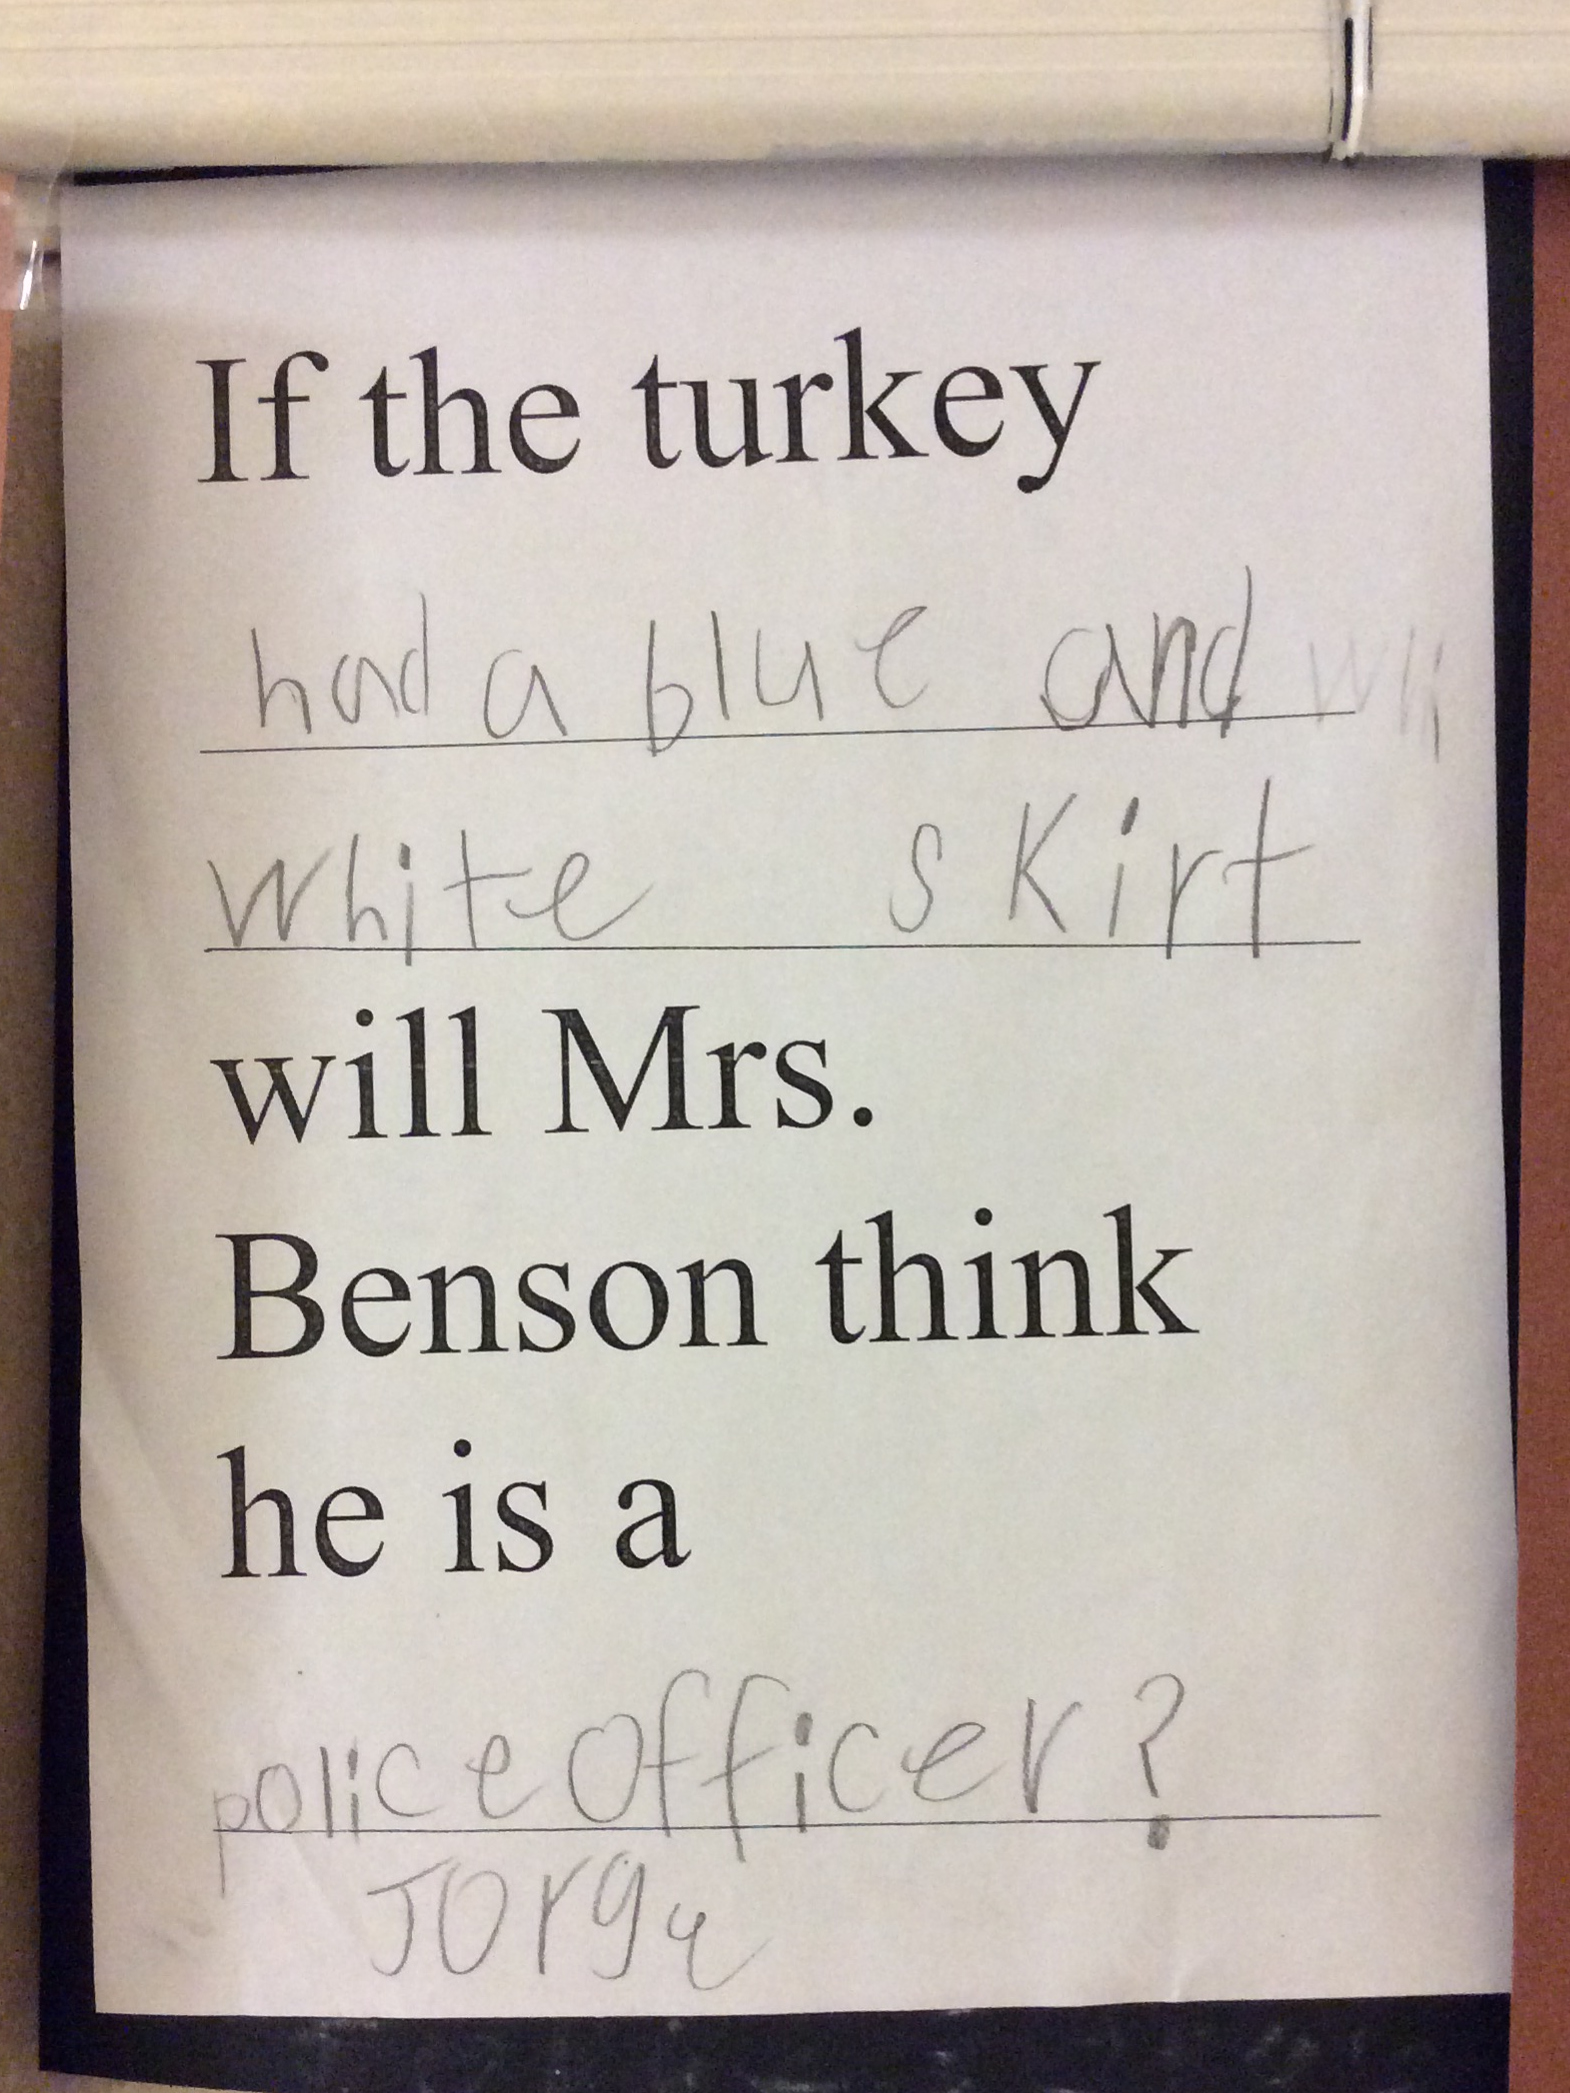 If the turkey
had a blue and
white skirt
will Mrs.
Benson think
he is a
police officer?
Jorge